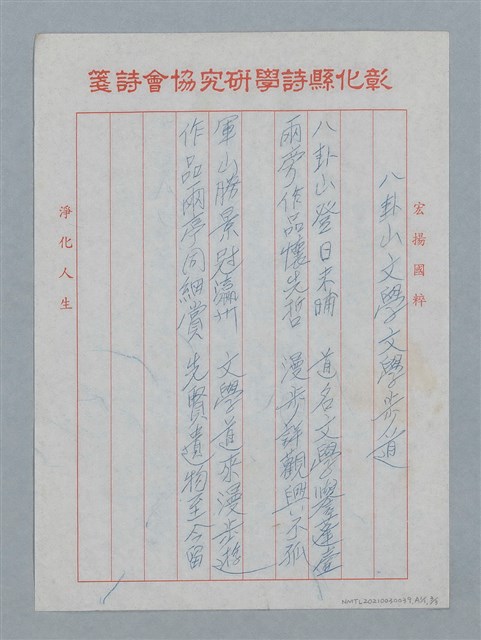 彰化縣詩學研究協會詩箋
宏揚國粹
八卦山文學文學步道
八卦山登日未晡 道名文學譽蓬壺
兩旁作品懷先哲 漫步詳觀興不孤
軍山勝景冠瀛州 文學道來漫步遊
作品兩亭同細賞 先賢遺物至今留
淨化人生
NMTL20210030059